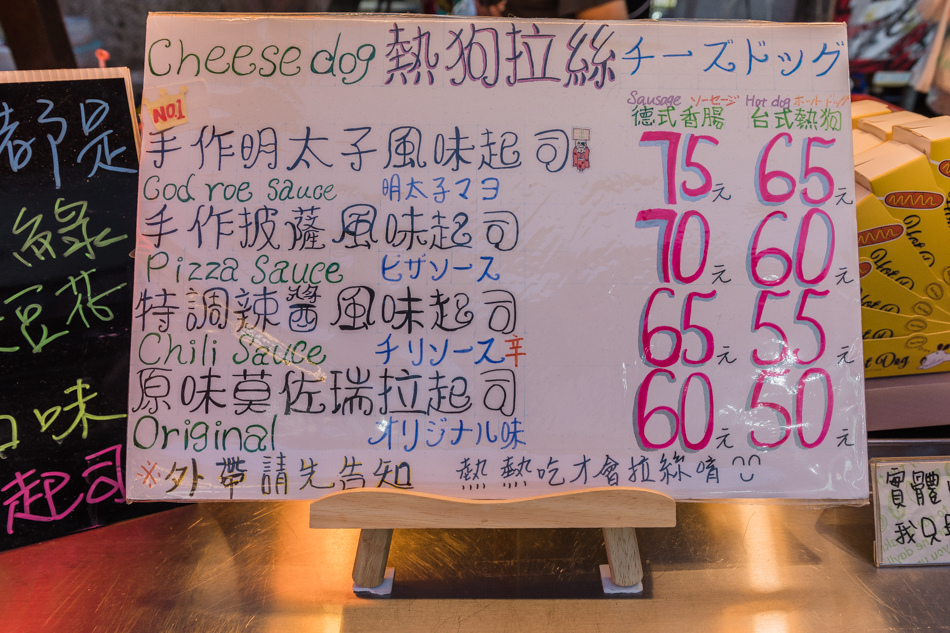 Cheese dog 熱狗拉絲 チーズドッグ
Sausage ソーセージ Hot dog ホットドッグ
德式香腸 台式熱狗
No1
手作明太子風味起司 75元 65元
Cod roe sauce 明太子マヨ
手作披薩風味起司 70元 60元
Pizza Sauce ピザソース
特調辣醬風味起司 65元 55元
Chili Sauce チリソース辛
原味莫佐瑞拉起司 60元 50元
Original オリジナル味
※外帶請先告知 熱熱吃才會拉絲唷
都是
綠
豆花
口味
起司
實體
我只